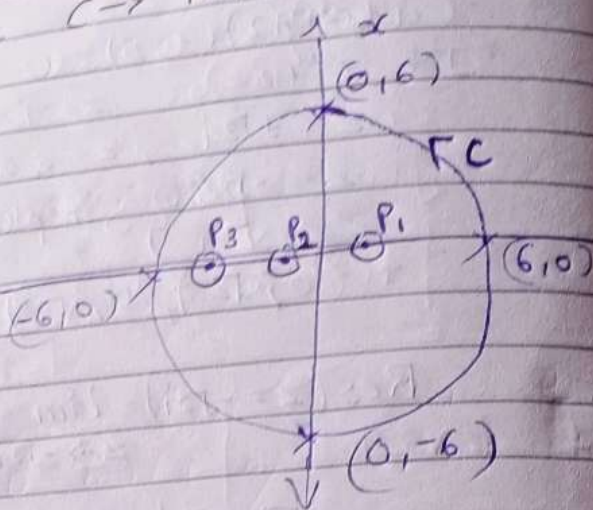 x
(0,6)
C
P3 P2 P1
(-6,0) (6,0)
(0,-6)